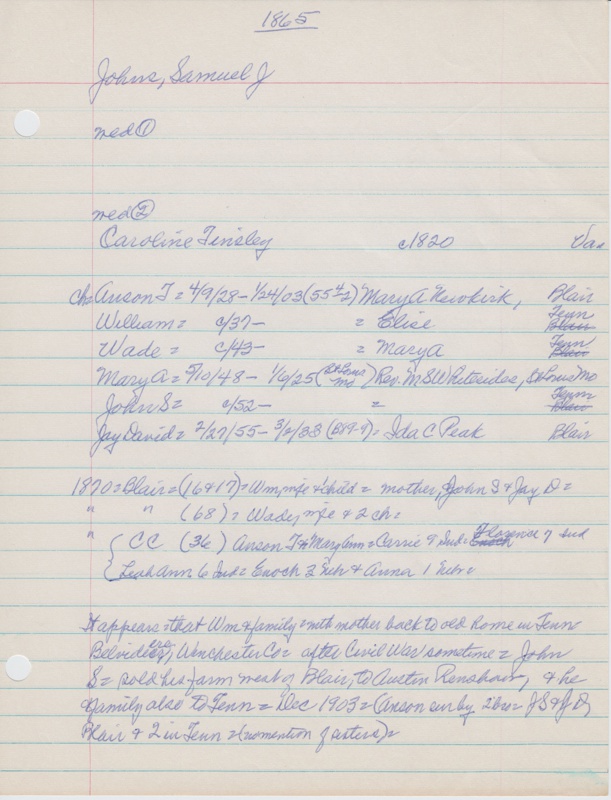 1865
Johns, Samuel J
med ①
med ②
Caroline Tinsley c1820 Va=
ch= Anson T = 4/9/28 - 1/24/03 (55#2) Mary A Newkirk, Blair
William = c/37 - = Elise Tenn Blair
Wade = c/43 - = Mary A Tenn Blair
Mary A = 5/10/48 - 1/6/25 (St Louis Mo) Rev. M S Whitesides, St Louis Mo
John S = c/52 - = Tenn Blair
Jay David = 2/27/55 - 3/2/33 = Ida C Peak Blair
1870 = Blair = (16 & 17) = Wm, wife & child = mother, John S & Jay D =
" " (68) = Wade, wife & 2 ch =
" CC (36) Anson T & Mary Ann = Carrie 9 Ind = Enoch Florence 7 Ind
Leah Ann 6 Ind = Enoch 3 Nebr & Anna 1 Nebr =
It appears = that Wm & family = with mother back to old home in Tenn =
Belvidere, Winchester Co = after Civil War sometime = John
S = sold his farm west of Blair, to Austin Renshaw, & he
& family also to Tenn = Dec 1903 = (Anson sur by 2 bro = J S & J D,
Blair & 2 in Tenn = (no mention of sisters) =